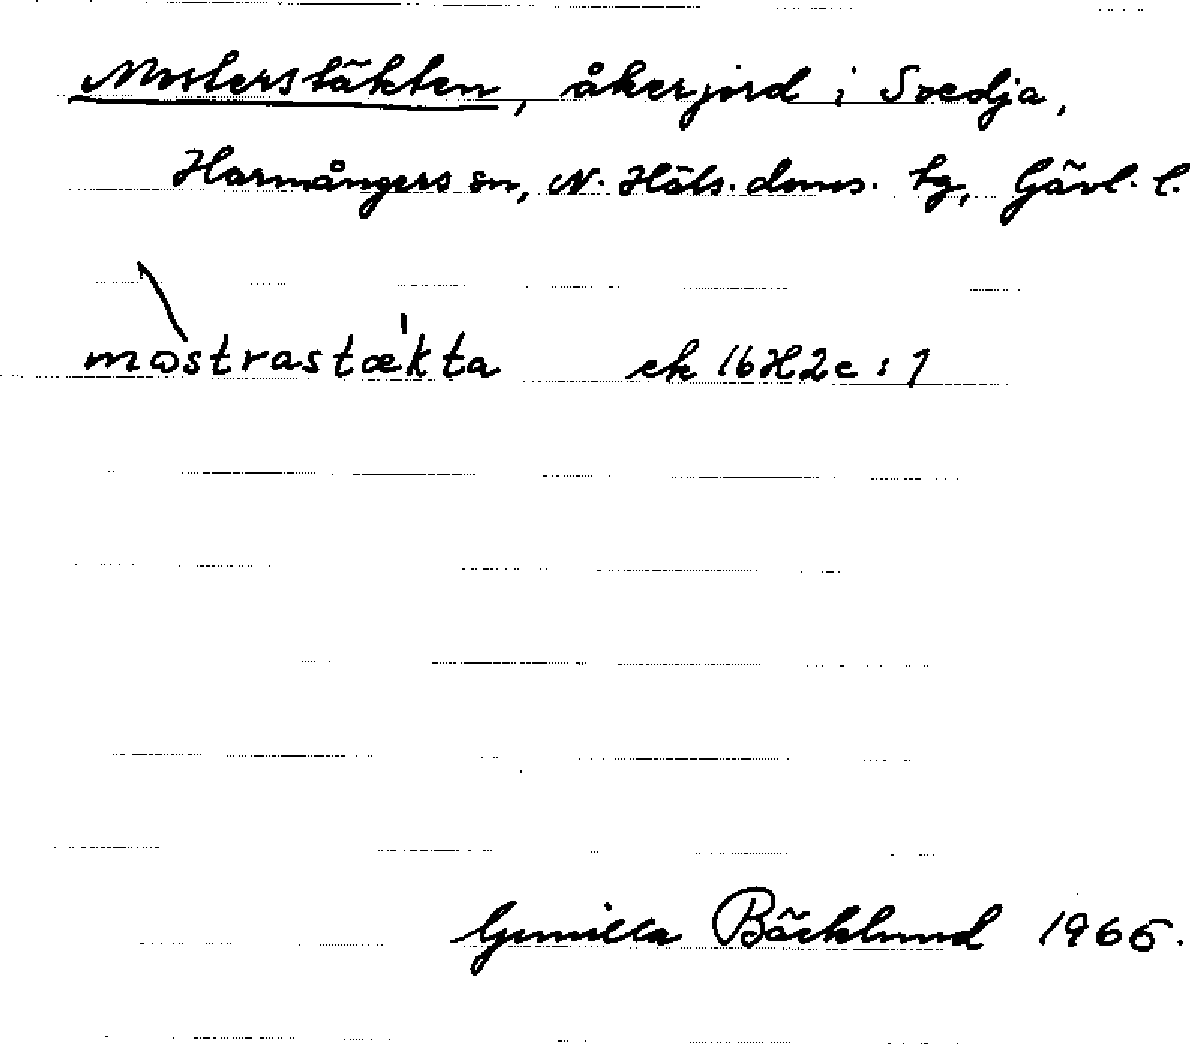 Mosterstäkten, åkerjord i Svedja,
Harmångers sn, N. Häls. doms. tg, Gävl. l.
mostrastækta ek 16H2e:1
Gunilla Bäcklund 1966.